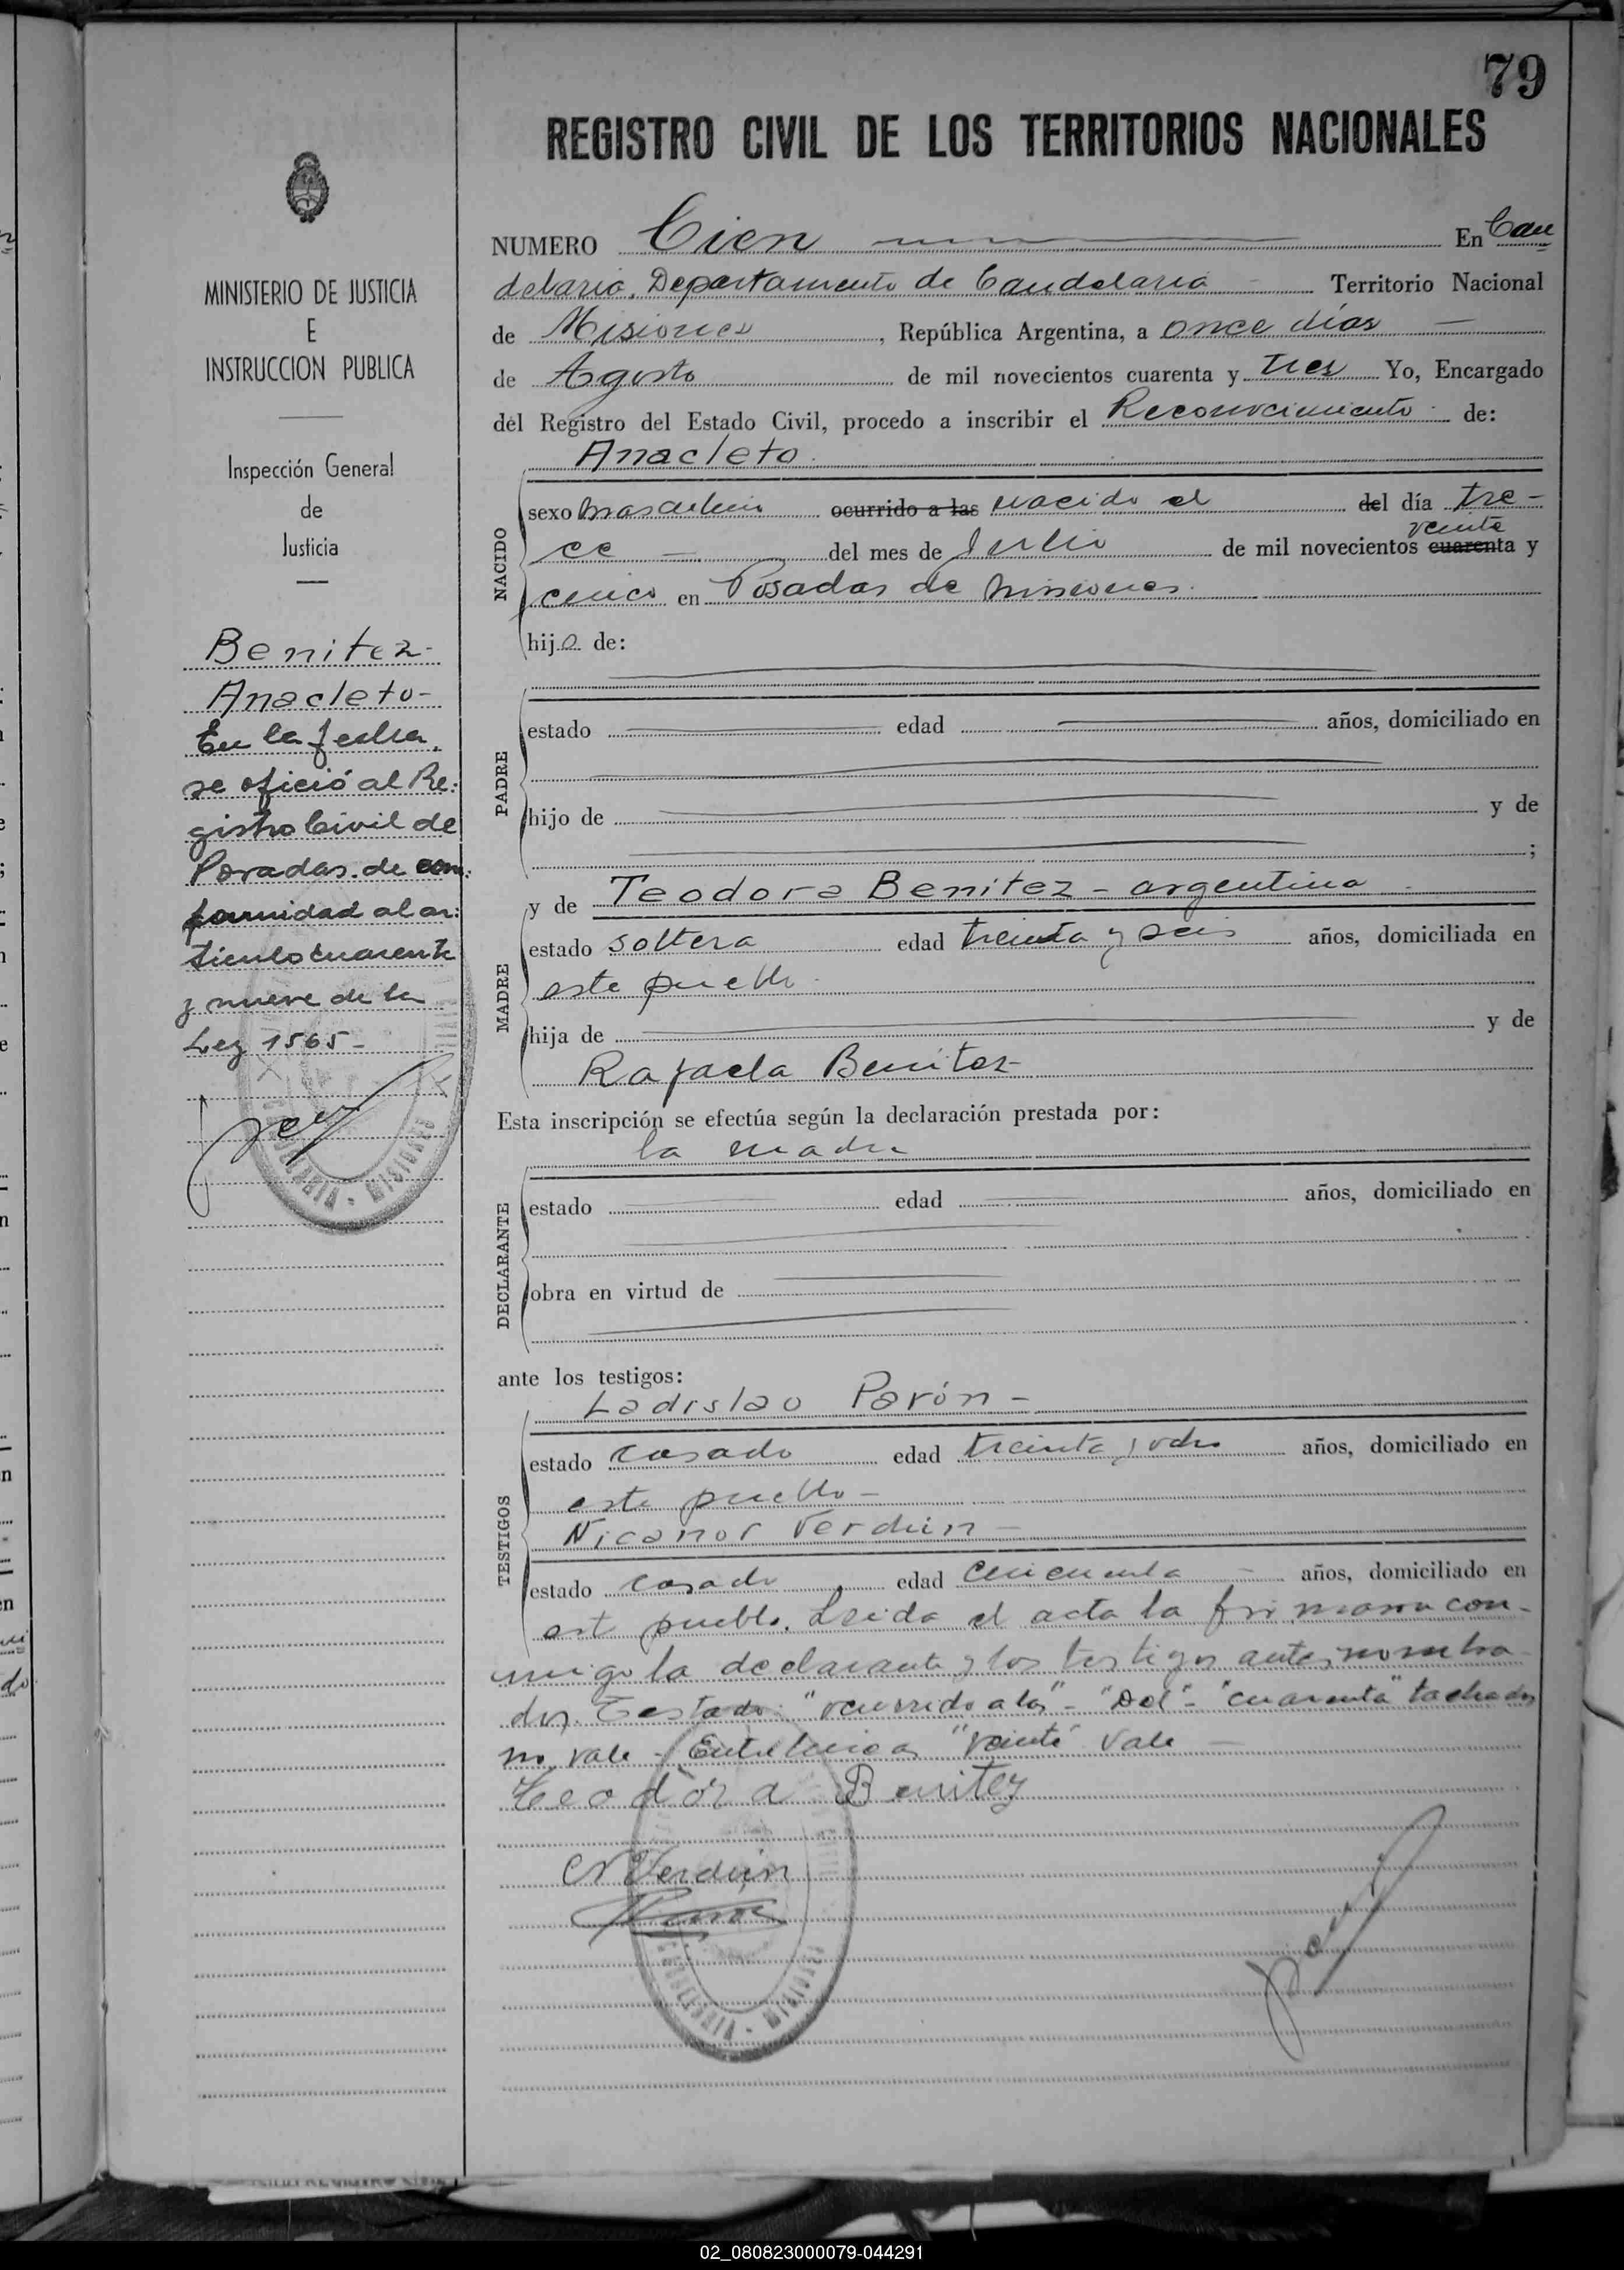 79
REGISTRO CIVIL DE LOS TERRITORIOS NACIONALES
MINISTERIO DE JUSTICIA
E
INSTRUCCION PUBLICA
Inspección General
de
Justicia
Benitez-
Anacleto-
En la fecha,
se ofició al Re:
gistro Civil de
Posadas. de con:
formidad al ar:
tículo cuarenta
y nueve de la
Ley 1565-
NUMERO Cien En Can
delaria, Departamento de Candelaria Territorio Nacional
de Misiones, República Argentina, a once días
de Agosto de mil novecientos cuarenta y tres Yo, Encargado
del Registro del Estado Civil, procedo a inscribir el Reconocimiento de:
Anacleto
NACIDO
sexo masculino ocurrido a las nacido el del día tre-
veinte
ce del mes de Julio de mil novecientos cuarenta y
cinco en Posadas de Misiones.
hijo de:
PADRE
estado edad años, domiciliado en
hijo de y de
;
y de Teodora Benitez - argentina
MADRE
estado soltera edad treinta y seis años, domiciliada en
este pueblo
hija de y de
Rafaela Benitez
Esta inscripción se efectúa según la declaración prestada por:
la madre
DECLARANTE
estado edad años, domiciliado en
obra en virtud de
ante los testigos:
Ladislao Parón -
TESTIGOS
estado casado edad treinta y ocho años, domiciliado en
este pueblo -
Nicanor Verdun
estado casado edad cincuenta años, domiciliado en
est pueblo. Leida el acta la firmaron con-
migo la declarante y los testigos antes nombra
dos. Testado: "ocurrido a las" - "Del" - "cuarenta" tachados
no vale - Entre lineas "veinte" Vale
Teodora Benitez
N Verdún
CANDELARIA - MISIONES
02_080823000079-044291